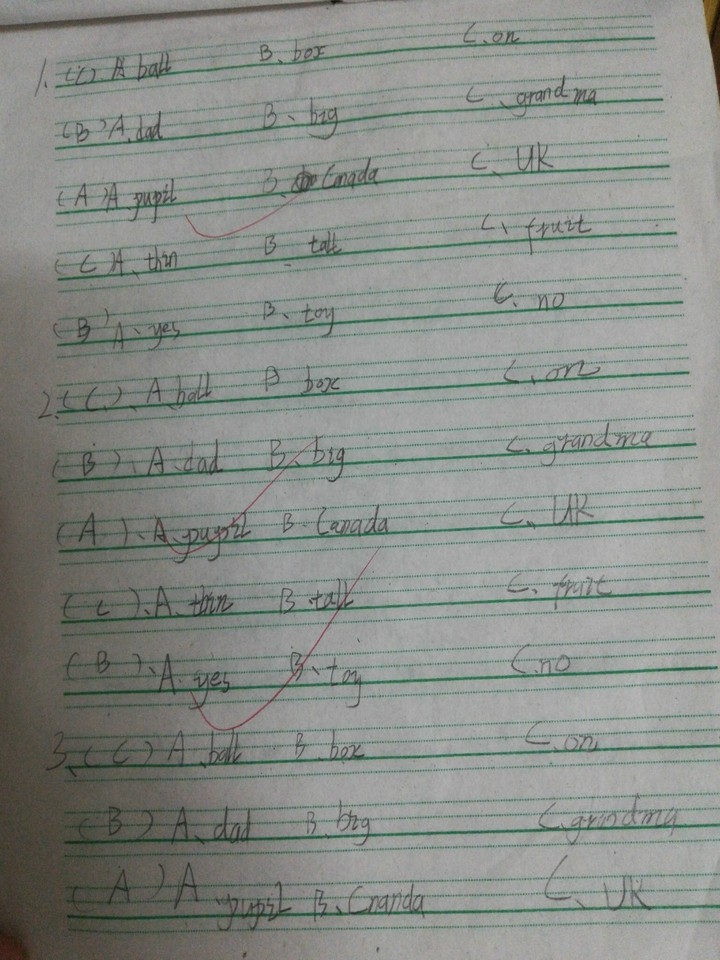 1. (C) A ball B. box C. on
(B) A. dad B. big C. grandma
(A) A pupil B. Cnada C. UK
(C) A. thin B. tall C. fruit
(B) A. yes B. toy C. no
2. (C). A ball B box C. on
(B). A. dad B. big C. grandma
(A). A. pupil B. Canada C. UK
(C). A. thin B tall C. fruit
(B). A. yes B. toy C. no
3. (C) A ball B. box C. on
(B) A. dad B. big C. grandma
(A) A pupil B. Cnanda C. UK